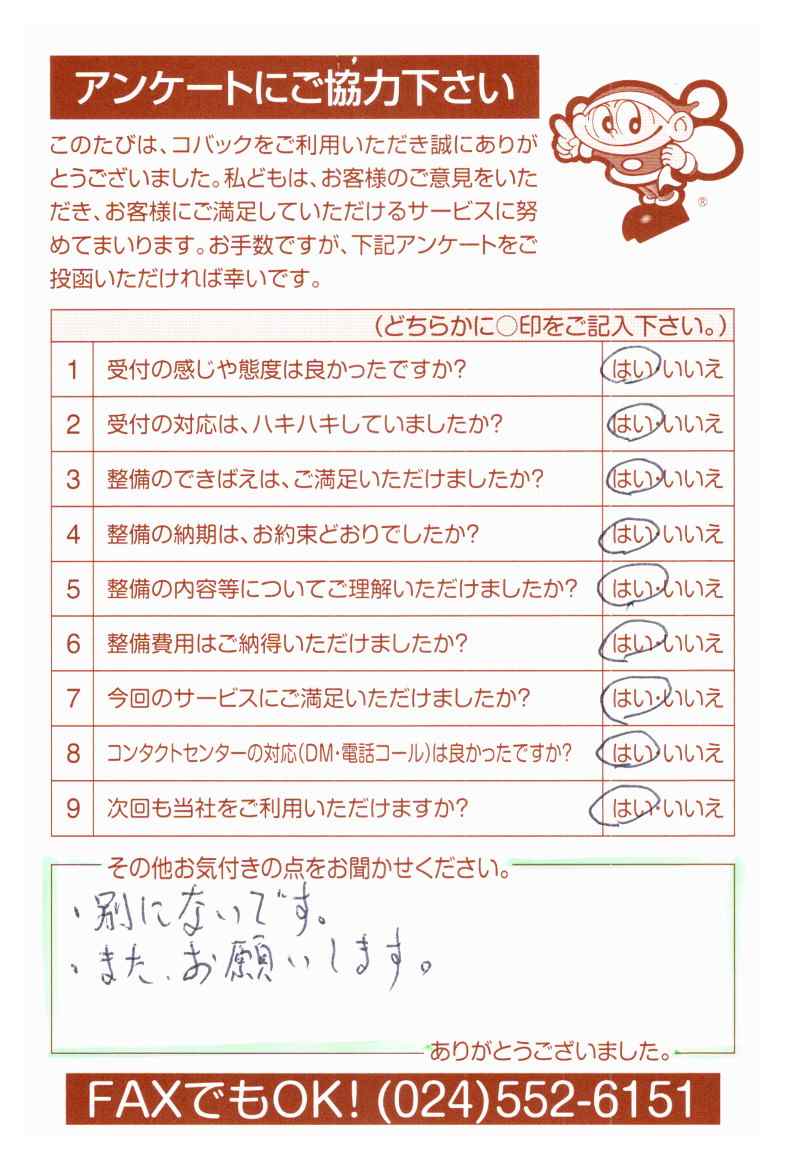 アンケートにご協力下さい
このたびは、コバックをご利用いただき誠にありが
とうございました。私どもは、お客様のご意見をいた
だき、お客様にご満足していただけるサービスに努
めてまいります。お手数ですが、下記アンケートをご
投函いただければ幸いです。
®
(どちらかに○印をご記入下さい。)
1 受付の感じや態度は良かったですか? はい・いいえ
2 受付の対応は、ハキハキしていましたか? はい・いいえ
3 整備のできばえは、ご満足いただけましたか? はい・いいえ
4 整備の納期は、お約束どおりでしたか? はい・いいえ
5 整備の内容等についてご理解いただけましたか? はい・いいえ
6 整備費用はご納得いただけましたか? はい・いいえ
7 今回のサービスにご満足いただけましたか? はい・いいえ
8 コンタクトセンターの対応(DM・電話コール)は良かったですか? はい・いいえ
9 次回も当社をご利用いただけますか? はい・いいえ
その他お気付きの点をお聞かせください。
・別にないです。
・また、お願いします。
ありがとうございました。
FAXでもOK! (024)552-6151